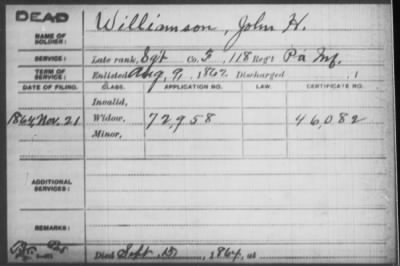 DEAD
NAME OF SOLDIER: Williamson, John H.
SERVICE: Late rank, Sgt Co. F, 118 Reg't Pa Inf.
TERM OF SERVICE: Enlisted Aug. 9, 1862 Discharged , 1
DATE OF FILING. CLASS. APPLICATION NO. LAW. CERTIFICATE NO.
Invalid,
1864 Nov. 21 Widow, 72,958 46,082
Minor,
ADDITIONAL SERVICES:
REMARKS:
Died Sept. 1864, at